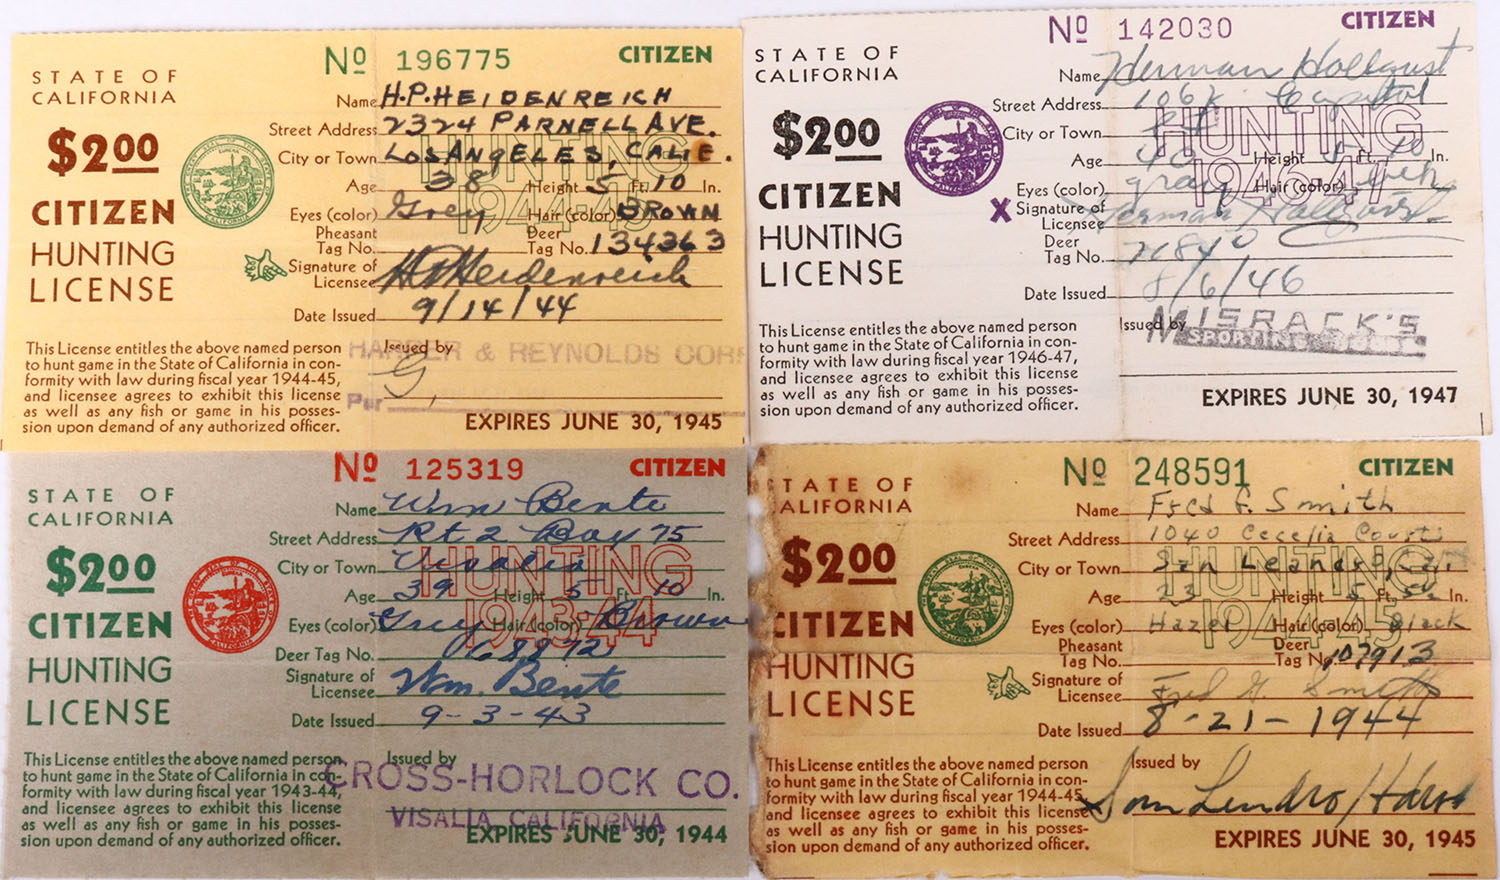 STATE OF
CALIFORNIA
$2.00
CITIZEN
HUNTING
LICENSE
This License entitles the above named person
to hunt game in the State of California in con-
formity with law during fiscal year 1944-45,
and licensee agrees to exhibit this license
as well as any fish or game in his posses-
sion upon demand of any authorized officer.
No 196775 CITIZEN
HUNTING
1944-45
Name H.P. HEIDENREICH
Street Address 2324 PARNELL AVE.
City or Town LOS ANGELES, CALIF.
Age 38 Height 5 Ft. 10 In.
Eyes (color) Grey Hair (color) BROWN
Pheasant
Tag No.
Deer
Tag No. 134363
Signature of
Licensee H P Heidenreich
Date Issued 9/14/44
Issued by
HARPER & REYNOLDS CORP
Per
EXPIRES JUNE 30, 1945
STATE OF
CALIFORNIA
$2.00
CITIZEN
HUNTING
LICENSE
This License entitles the above named person
to hunt game in the State of California in con-
formity with law during fiscal year 1946-47,
and licensee agrees to exhibit this license
as well as any fish or game in his posses-
sion upon demand of any authorized officer.
No 142030 CITIZEN
HUNTING
1946-47
Name Herman Hollquist
Street Address
City or Town
Age 40 Height 5 Ft. In.
Eyes (color) gray Hair (color)
X Signature of
Licensee Herman Hollquist
Deer
Tag No.
Date Issued 8/6/46
Issued by
MISRACK'S
SPORTING GOODS
EXPIRES JUNE 30, 1947
STATE OF
CALIFORNIA
$2.00
CITIZEN
HUNTING
LICENSE
This License entitles the above named person
to hunt game in the State of California in con-
formity with law during fiscal year 1943-44,
and licensee agrees to exhibit this license
as well as any fish or game in his posses-
sion upon demand of any authorized officer.
No 125319 CITIZEN
HUNTING
1943-44
Name Wm Bente
Street Address Rt 2 Box 75
City or Town Visalia
Age 39 Height 5 Ft. 10 In.
Eyes (color) Grey Hair (color) Brown
Deer Tag No.
Signature of
Licensee Wm. Bente
Date Issued 9-3-43
Issued by
CROSS-HORLOCK CO.
VISALIA, CALIFORNIA
EXPIRES JUNE 30, 1944
STATE OF
CALIFORNIA
$2.00
CITIZEN
HUNTING
LICENSE
This License entitles the above named person
to hunt game in the State of California in con-
formity with law during fiscal year 1944-45,
and licensee agrees to exhibit this license
as well as any fish or game in his posses-
sion upon demand of any authorized officer.
No 248591 CITIZEN
HUNTING
1944-45
Name Fred G. Smith
Street Address 1040 Cecelia Court
City or Town San Leandro, Cal.
Age 23 Height 5 Ft. In.
Eyes (color) Hazel Hair (color) Black
Pheasant
Tag No.
Deer
Tag No. 107913
Signature of
Licensee Fred G. Smith
Date Issued 8-21-1944
Issued by
San Lendro Hdw
EXPIRES JUNE 30, 1945